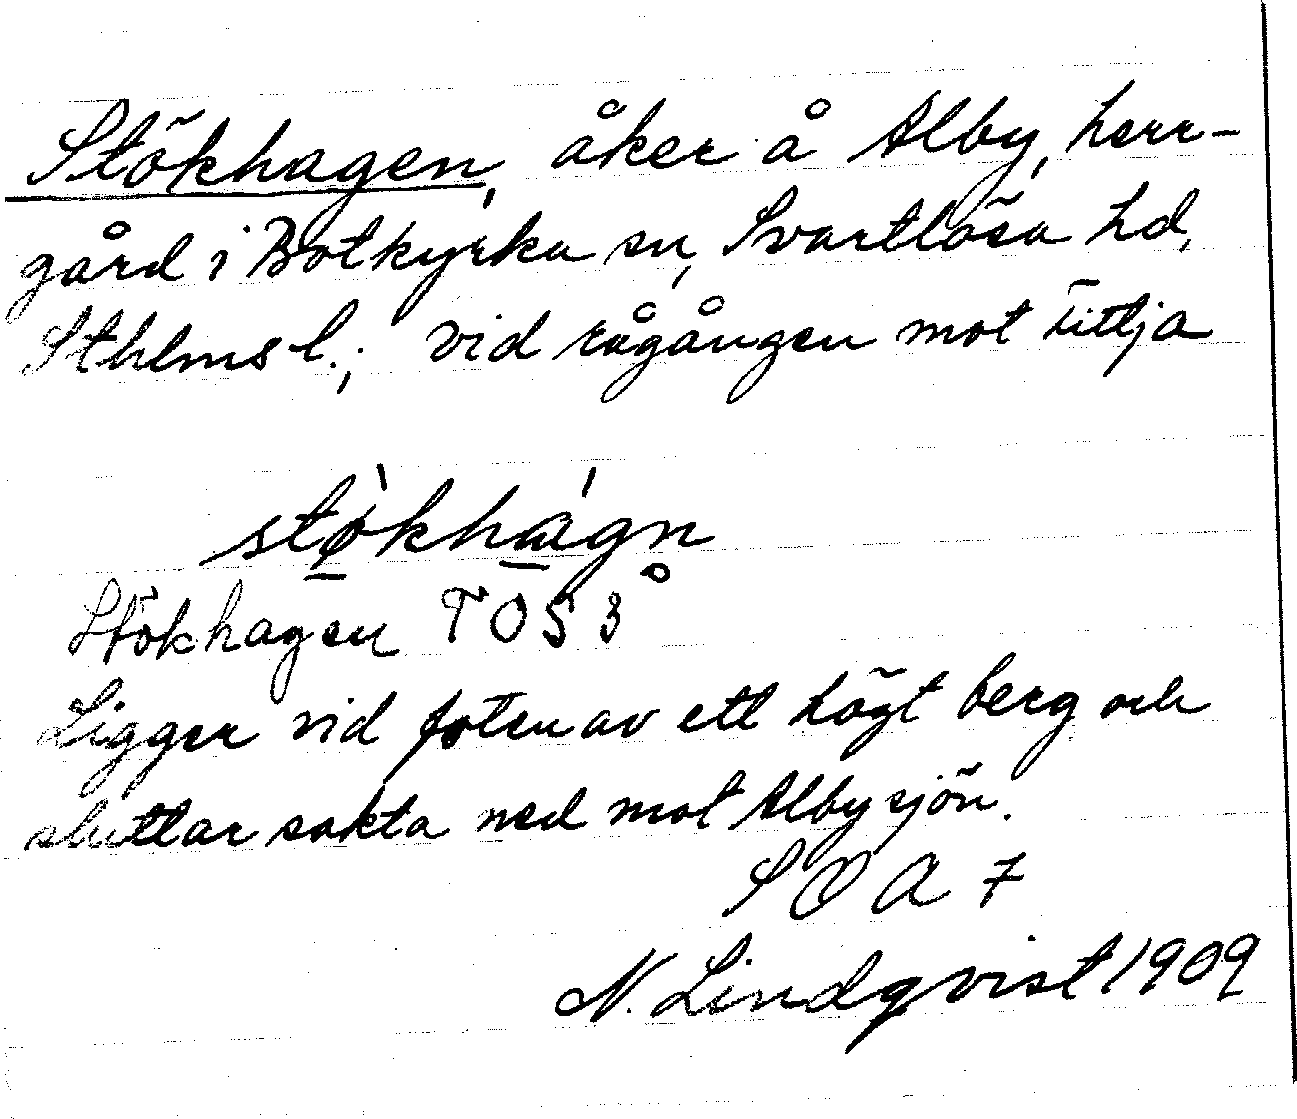 Stökhagen, åker å Alby, herr-
gård i Botkyrka sn, Svartlösa hd,
Sthlms l.; vid rågången mot Fittja
stø̀khágn
Stökhagen TOS 3
Ligger vid foten av ett högt berg och
sluttar sakta ned mot Albysjön.
S O A 7
N. Lindqvist 1909